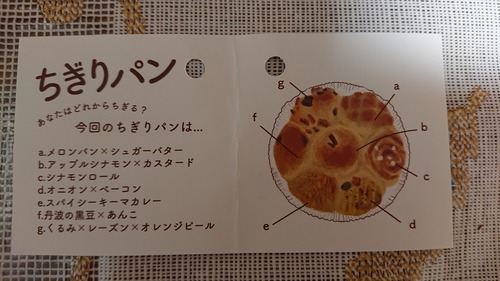 ちぎりパン
あなたはどれからちぎる？
今回のちぎりパンは...
a.メロンパン×シュガーバター
b.アップルシナモン×カスタード
c.シナモンロール
d.オニオン×ベーコン
e.スパイシーキーマカレー
f.丹波の黒豆×あんこ
g.くるみ×レーズン×オレンジピール
g
a
f
b
c
e
d